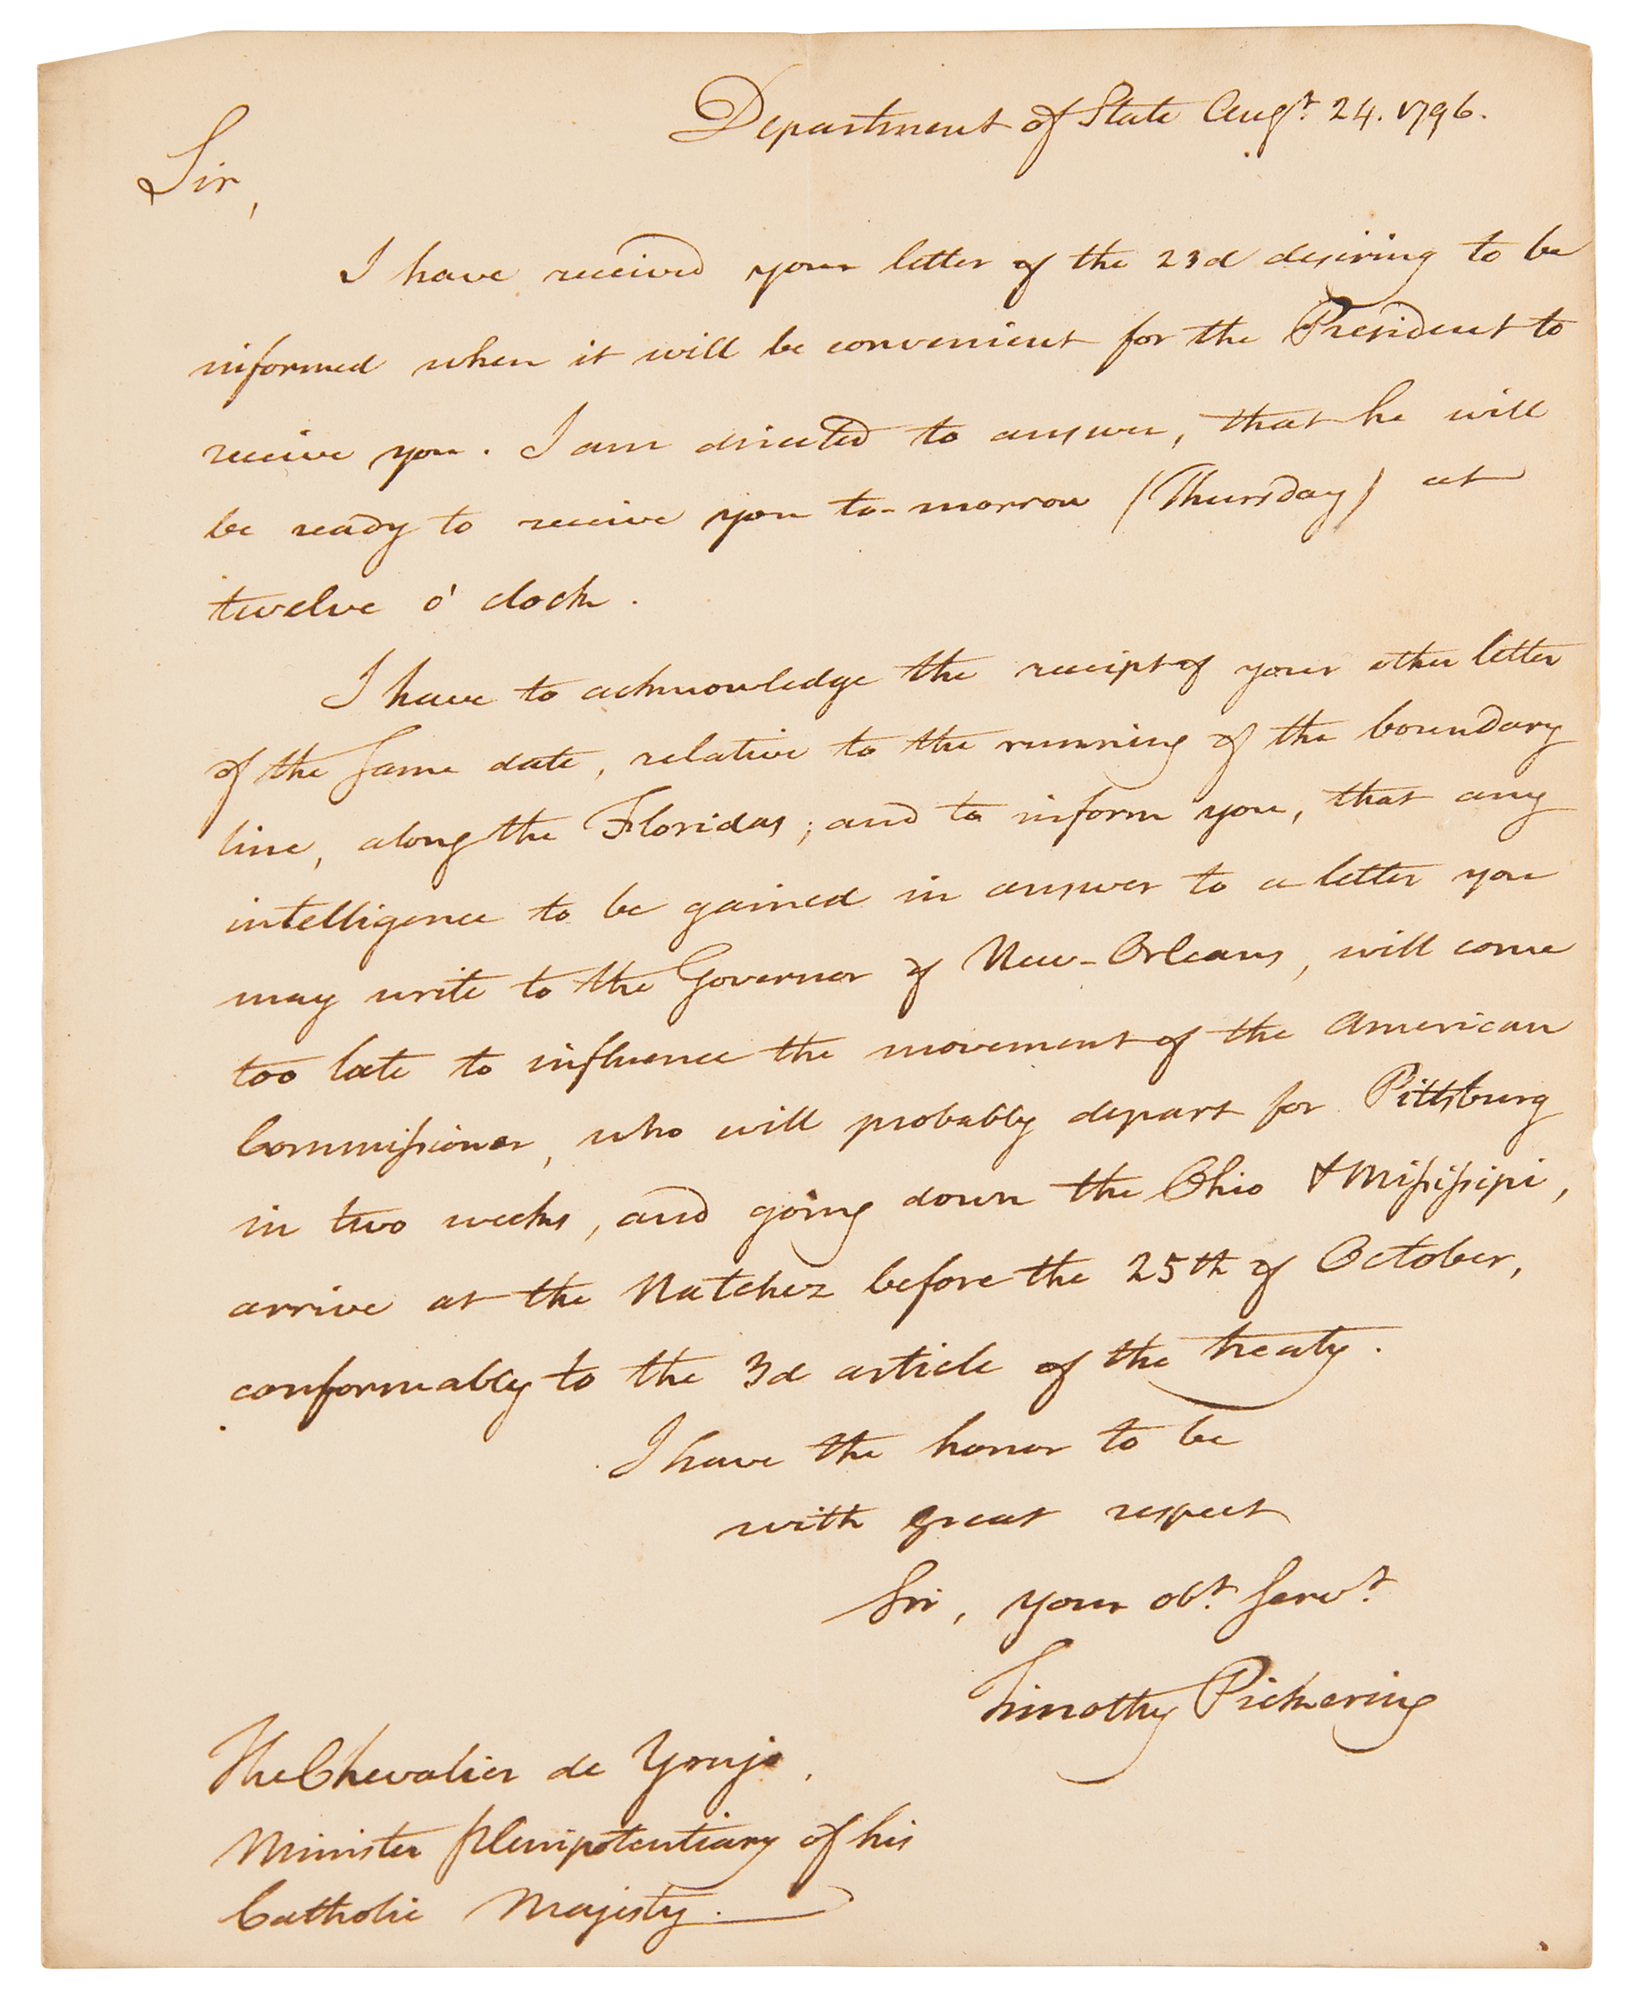 Department of State Augt. 24. 1796.
Sir,
I have received your letter of the 23d desiring to be
informed when it will be convenient for the President to
receive you. I am directed to answer, that he will
be ready to receive you to-morrow (Thursday) at
twelve o'clock.
I have to acknowledge the receipt of your other letter
of the same date, relative to the running of the boundary
line, along the Floridas; and to inform you, that any
intelligence to be gained in answer to a letter you
may write to the Governor of New-Orleans, will come
too late to influence the movement of the American
Commissioner, who will probably depart for Pittsburg
in two weeks, and going down the Ohio & Missisippi,
arrive at the Natchez before the 25th of October,
conformably to the 3d article of the treaty.
I have the honor to be
with great respect
Sir, your obt. servt.
Timothy Pickering
The Chevalier de Yrujo,
Minister plenipotentiary of his
Catholic Majesty.